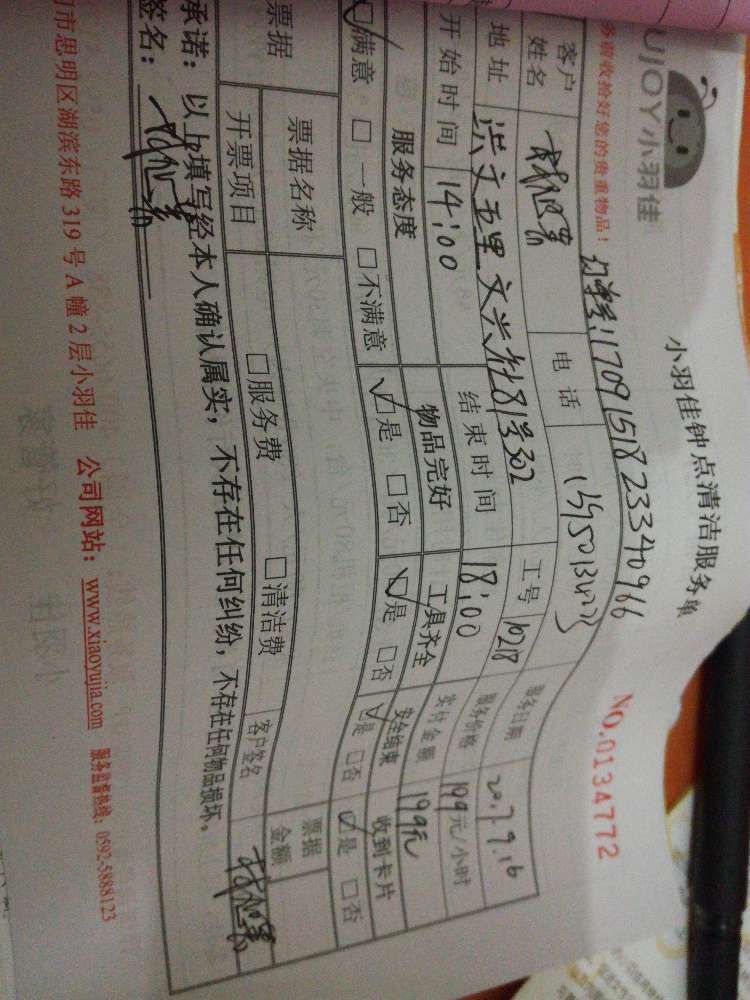 UJOY小羽佳
小羽佳钟点清洁服务单
NO.0134772
务前收拾好您的贵重物品！
11709151823340966
客户姓名 电话 服务日期
地址 洪文五里 302 工号 10218 服务价格 199元/小时
开始时间 14:00 结束时间 18:00 实付金额 199元
服务态度 物品完好 工具齐全 安全结束 收到卡片
☑满意 □一般 □不满意 ☑是 □否 ☑是 □否 ☑是 □否 ☑是 □否
票据 票据名称 □服务费 □清洁费 票据金额
开票项目 客户签名
承诺：以上填写经本人确认属实，不存在任何纠纷，不存在任何物品损坏。
签名：
门市思明区湖滨东路 319 号 A 幢 2 层小羽佳 公司网站：www.xiaoyujia.com 服务监督热线：0592-5888123